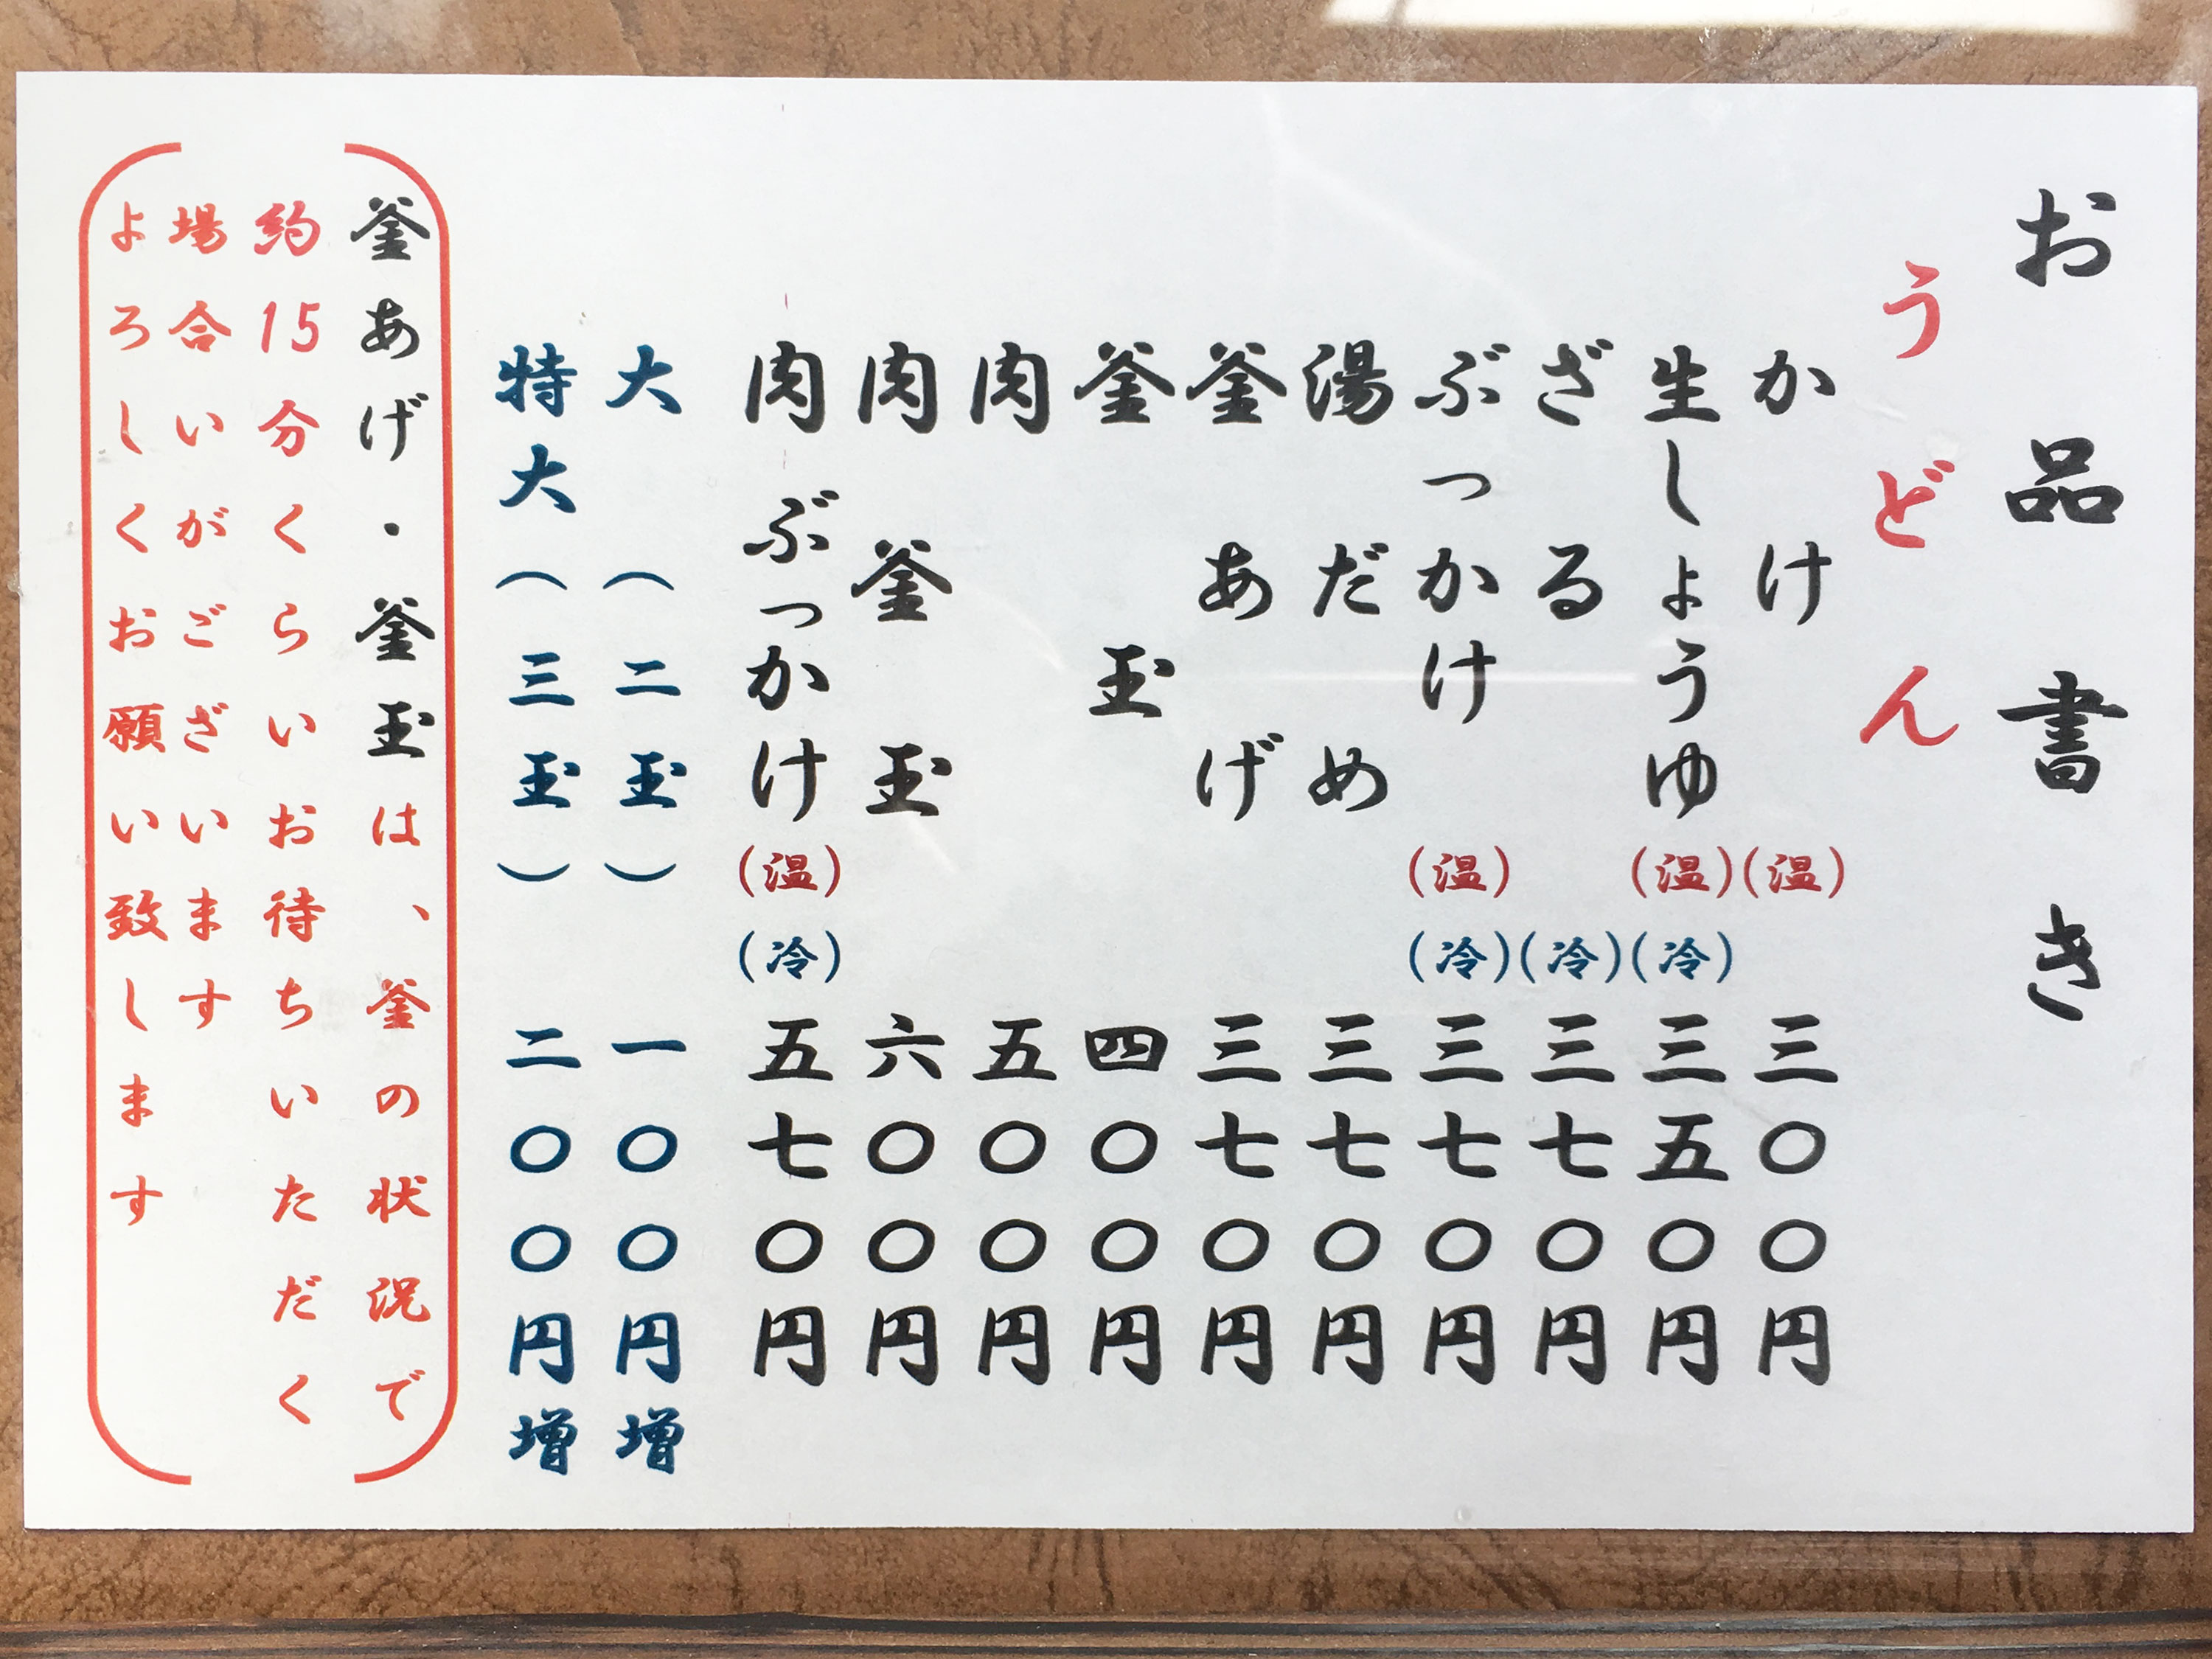 お品書き
うどん
かけ(温)三〇〇円
生しょうゆ(温)(冷)三五〇円
ざる(冷)三七〇円
ぶっかけ(温)(冷)三七〇円
湯だめ三七〇円
釜あげ三七〇円
釜玉四〇〇円
肉五〇〇円
肉釜玉六〇〇円
肉ぶっかけ(温)(冷)五七〇円
大(二玉)一〇〇円増
特大(三玉)二〇〇円増
釜あげ・釜玉は、釜の状況で
約15分くらいお待ちいただく
場合いがございます
よろしくお願い致します